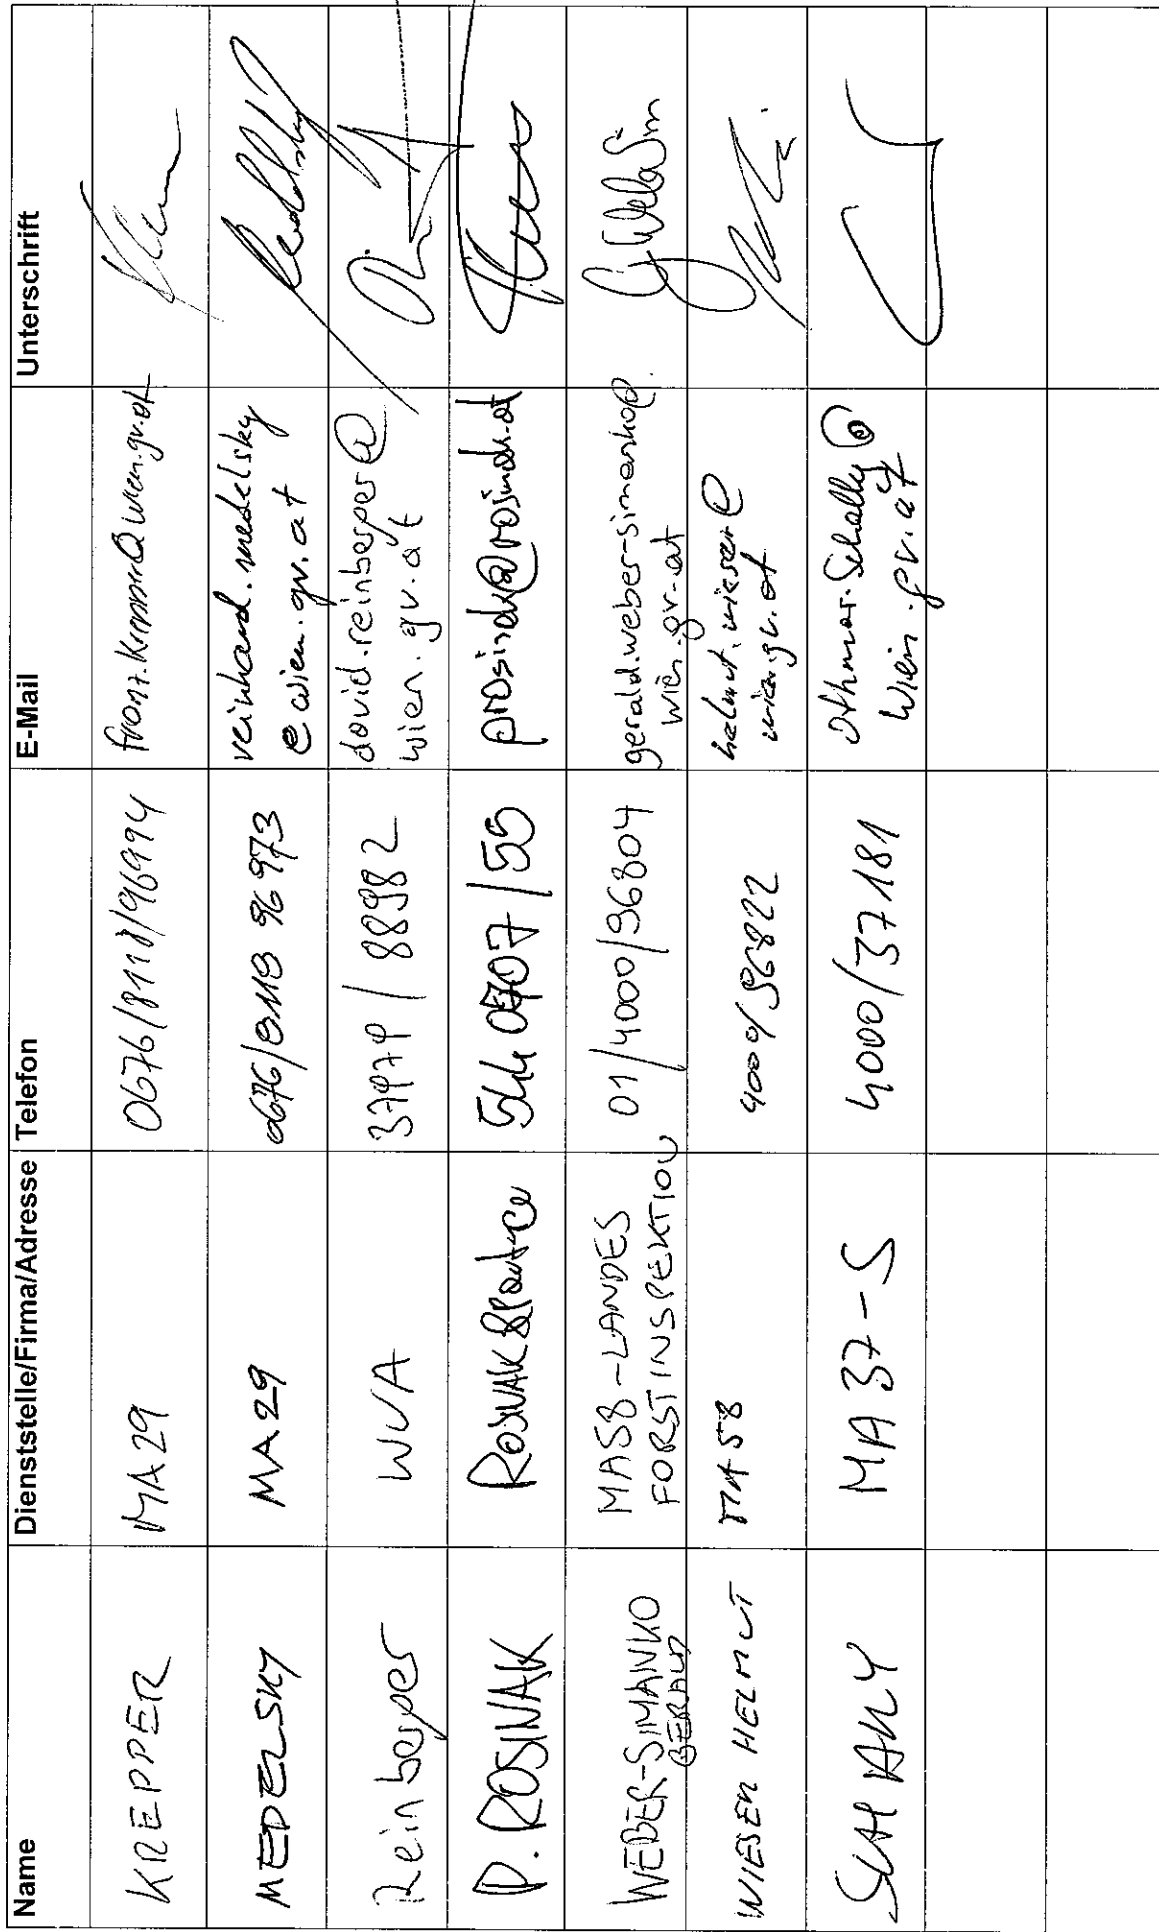 Name Dienststelle/Firma/Adresse Telefon E-Mail Unterschrift
KREPPER MA 29 0676/8118/96994 franz.krepper@wien.gv.at
MEDELSKY MA 29 0676/8118 96973 reinhard.medelsky
@wien.gv.at
Reinberger WVA 37979 / 88982 david.reinberger@
wien.gv.at
P. ROSINAK ROSINAK & Partner 544 0707 / 55 prosinak@rosinak.at
WEBER-SIMANKO MA58-LANDES 01/4000/96804 gerald.weber-simanko@
GERALD FORSTINSPEKTION wien.gv.at
WIESER HELMUT MA 58 4000/96822 helmut.wieser@
wien.gv.at
SCHALLY MA 37-S 4000/37181 Othmar.Schally@
wien.gv.at